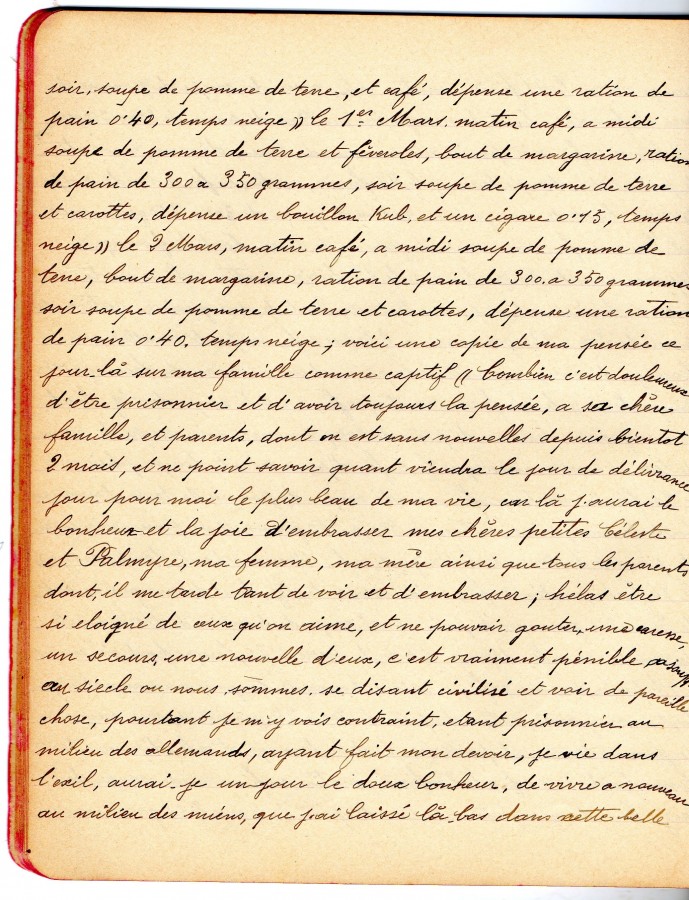 soir, soupe de pomme de terre, et café, dépense une ration de
pain 0'40, temps neige » le 1er Mars. matin café, a midi
soupe de pomme de terre et féveroles, bout de margarine, ration
de pain de 300 a 350 grammes, soir soupe de pomme de terre
et carottes, dépense un bouillon Kub, et un cigare 0'15, temps
neige » le 2 Mars, matin café, a midi soupe de pomme de
terre, bout de margarine, ration de pain de 300. a 350 grammes
soir soupe de pomme de terre et carottes, dépense une ration
de pain 0'40. temps neige ; voici une copie de ma pensée ce
jour-là sur ma famille comme captif « Combien c'est douloureux
d'être prisonnier et d'avoir toujours la pensée, a sa chère
famille, et parents, dont on est sans nouvelles depuis bientot
2 mois, et ne point savoir quant viendra le jour de délivrance
jour pour moi le plus beau de ma vie, car là j'aurai le
bonheur et la joie d'embrasser mes chères petites Céleste
et Palmyre, ma femme, ma mère ainsi que tous les parents
dont, il me tarde tant de voir et d'embrasser ; hélas être
si eloigné de ceux qu'on aime, et ne pouvoir gouter, une caresse,
un secours, une nouvelle d'eux, c'est vraiment pénible
au siecle ou nous sommes. se disant civilisé et voir de pareille
chose, pourtant je m'y vois contraint, etant prisonnier au
milieu des allemands, ayant fait mon devoir, je vie dans
l'exil, aurai-je un jour le doux bonheur, de vivre a nouveau
au milieu des miens, que j'ai laissé là-bas dans cette belle